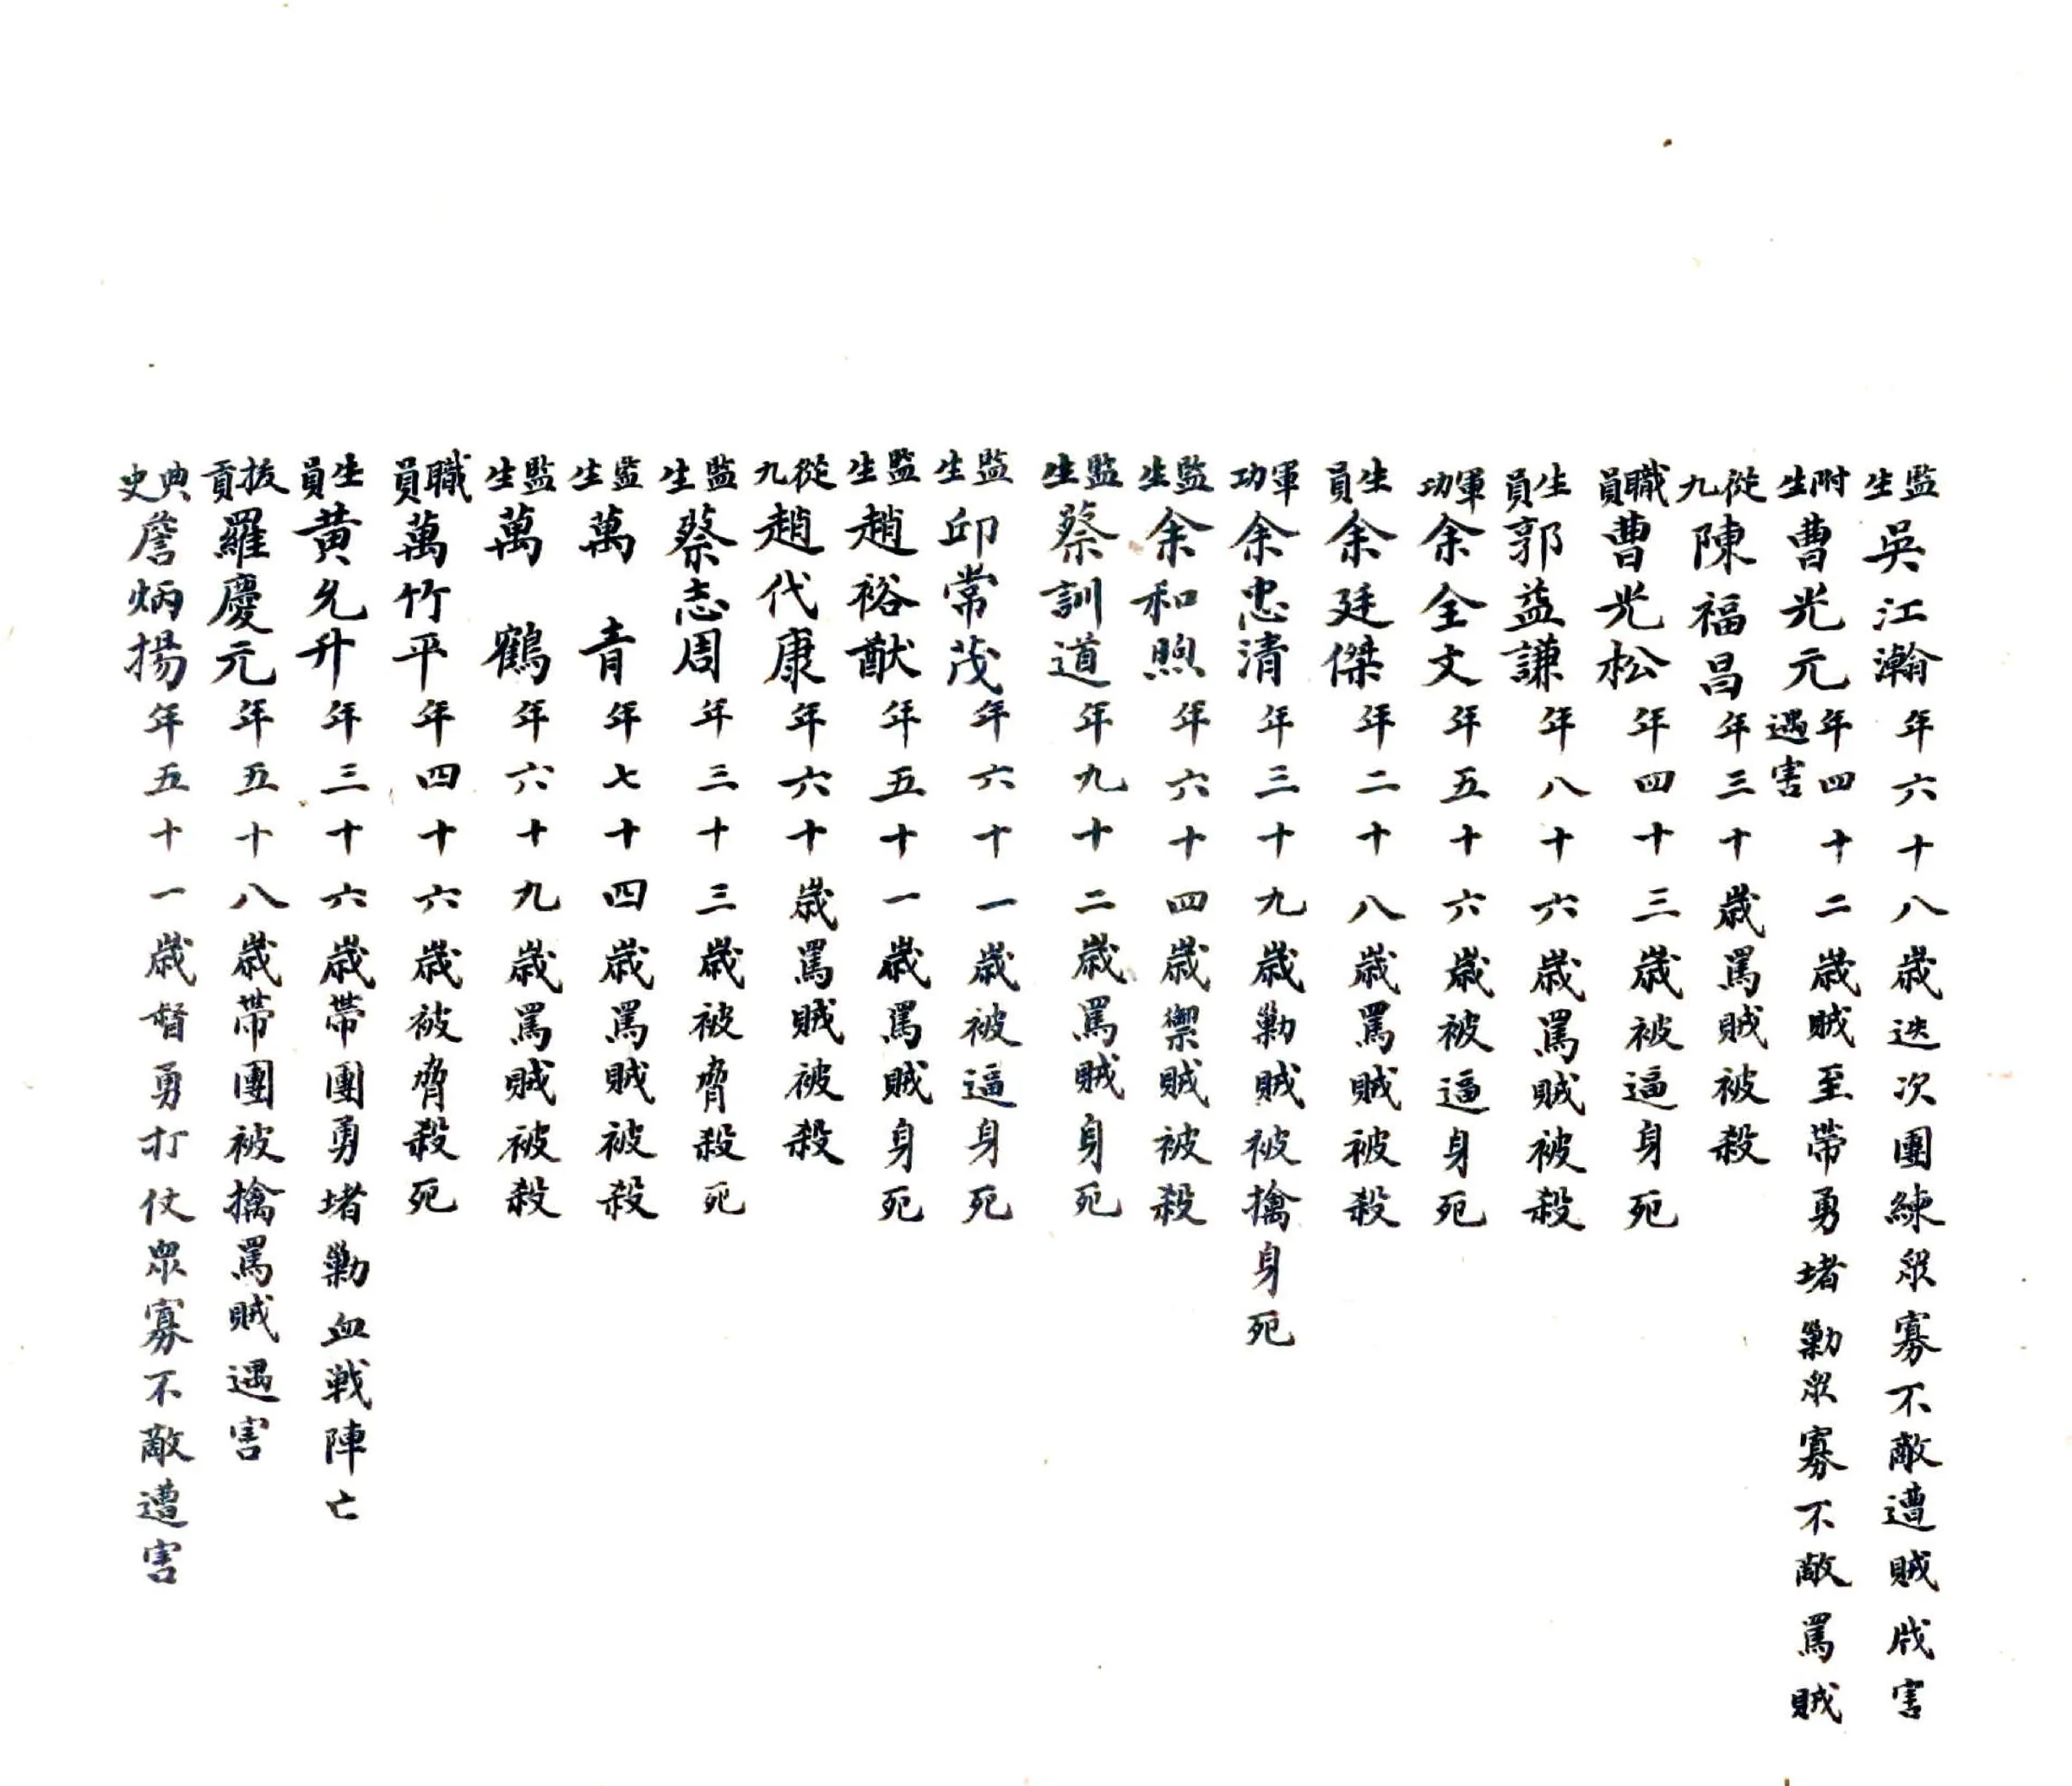 監生吳江瀚年六十八歲迭次團練眾寡不敵遭賊戕害
附生曹光元年四十二歲賊至帶勇堵勦眾寡不敵罵賊遇害
從九陳福昌年三十歲罵賊被殺
職員曹光松年四十三歲被逼身死
生員郭益謙年八十六歲罵賊被殺
軍功余全文年五十六歲被逼身死
生員余廷傑年二十八歲罵賊被殺
軍功余忠清年三十九歲勦賊被擒身死
監生余和煦年六十四歲禦賊被殺
監生蔡訓道年九十二歲罵賊身死
監生邱常茂年六十一歲被逼身死
監生趙裕猷年五十一歲罵賊身死
從九趙代康年六十歲罵賊被殺
監生蔡志周年三十三歲被脅殺死
監生萬青年七十四歲罵賊被殺
監生萬鶴年六十九歲罵賊被殺
職員萬竹平年四十六歲被脅殺死
生員黃允升年三十六歲帶團勇堵勦血戰陣亡
拔貢羅慶元年五十八歲帶團被擒罵賊遇害
典史詹炳揚年五十一歲督勇打仗眾寡不敵遭害